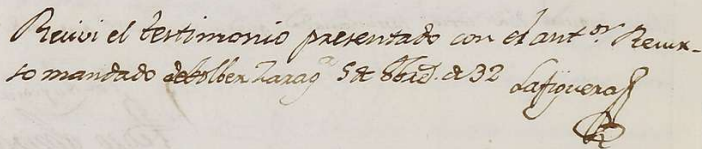 Recivi el testimonio presentado con el ant.or Recur-
so mandado debolber Zarag.a 5 de 8bre. de 32 Lafiguera